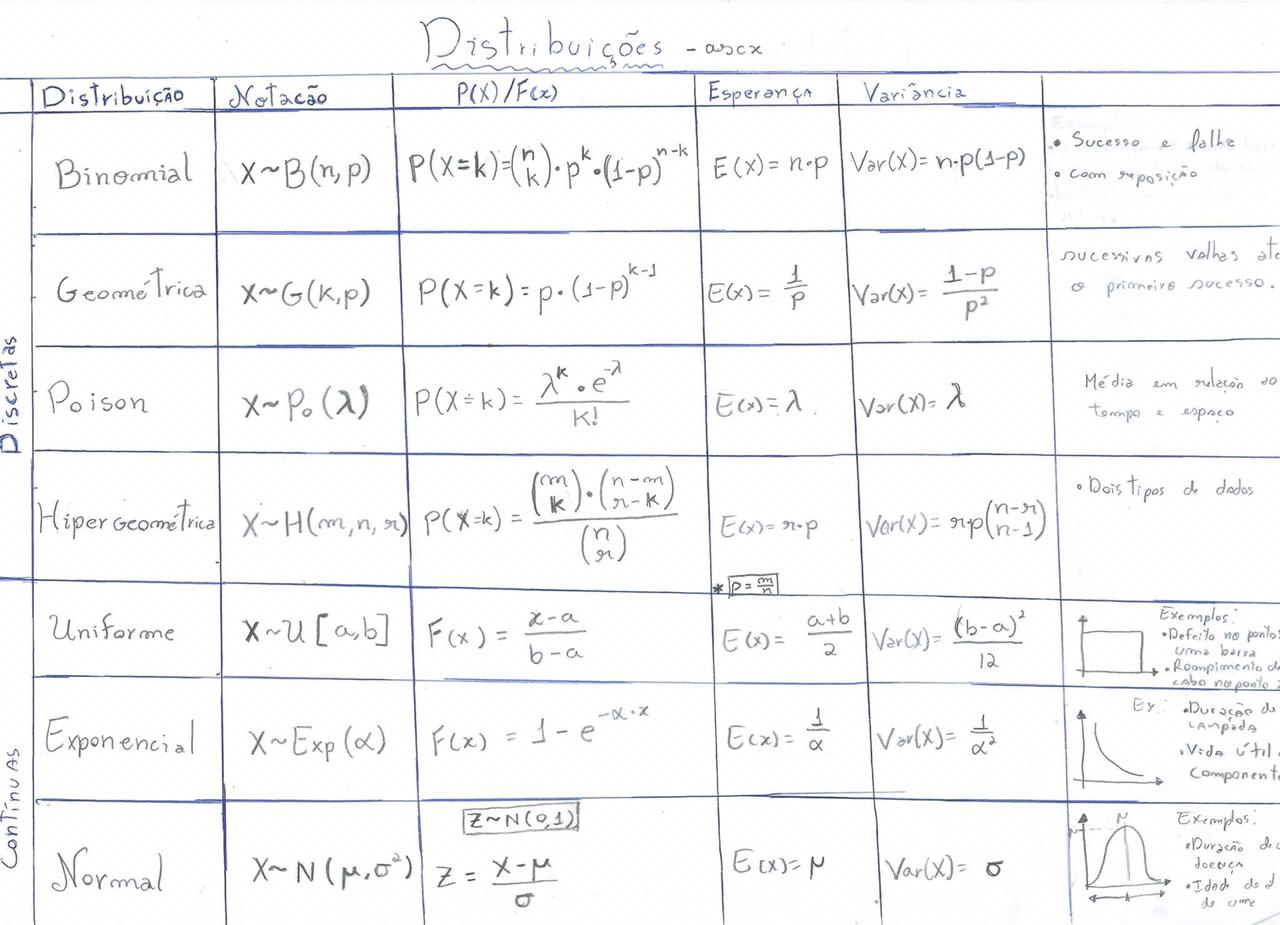 Distribuições - ascx
Distribuição Notacão P(X)/F(x) Esperança Variância
Discretas
Binomial X~B(n,p) P(X=k)=(n k)·p^k·(1-p)^n-k E(x)=n·p Var(X)=n·p(1-p)
• Sucesso e falha
• com reposição
Geométrica X~G(k,p) P(X=k)=p·(1-p)^k-1 E(x)=1/p Var(X)=1-p/p²
sucessivas valhas ate
o primeiro sucesso.
Poison X~Po(λ) P(X=k)=λ^k·e^-λ/k! E(x)=λ Var(X)=λ
Média em relação ao
tempo e espaço
Hipergeométrica X~H(m,n,r) P(X=k)=(m k)·(n-m r-k)/(n r) E(x)=r·p Var(X)=rp(n-r n-1)
• Dois tipos de dados
* p=m/n
Continuas
Uniforme X~U[a,b] F(x)=x-a/b-a E(x)=a+b/2 Var(X)=(b-a)²/12
Exemplos:
• Defeito no ponto
uma barra
• Rompimento d
cabo no ponto
Exponencial X~Exp(α) F(x)=1-e^-α·x E(x)=1/α Var(X)=1/α²
Ex:
• Duração de
Lâmpada
• Vida útil
Component
Z~N(0,1)
Normal X~N(μ,σ²) Z=x-μ/σ E(x)=μ Var(X)=σ
μ
Exemplos:
• Duração d
doença
• Idade de
de ume